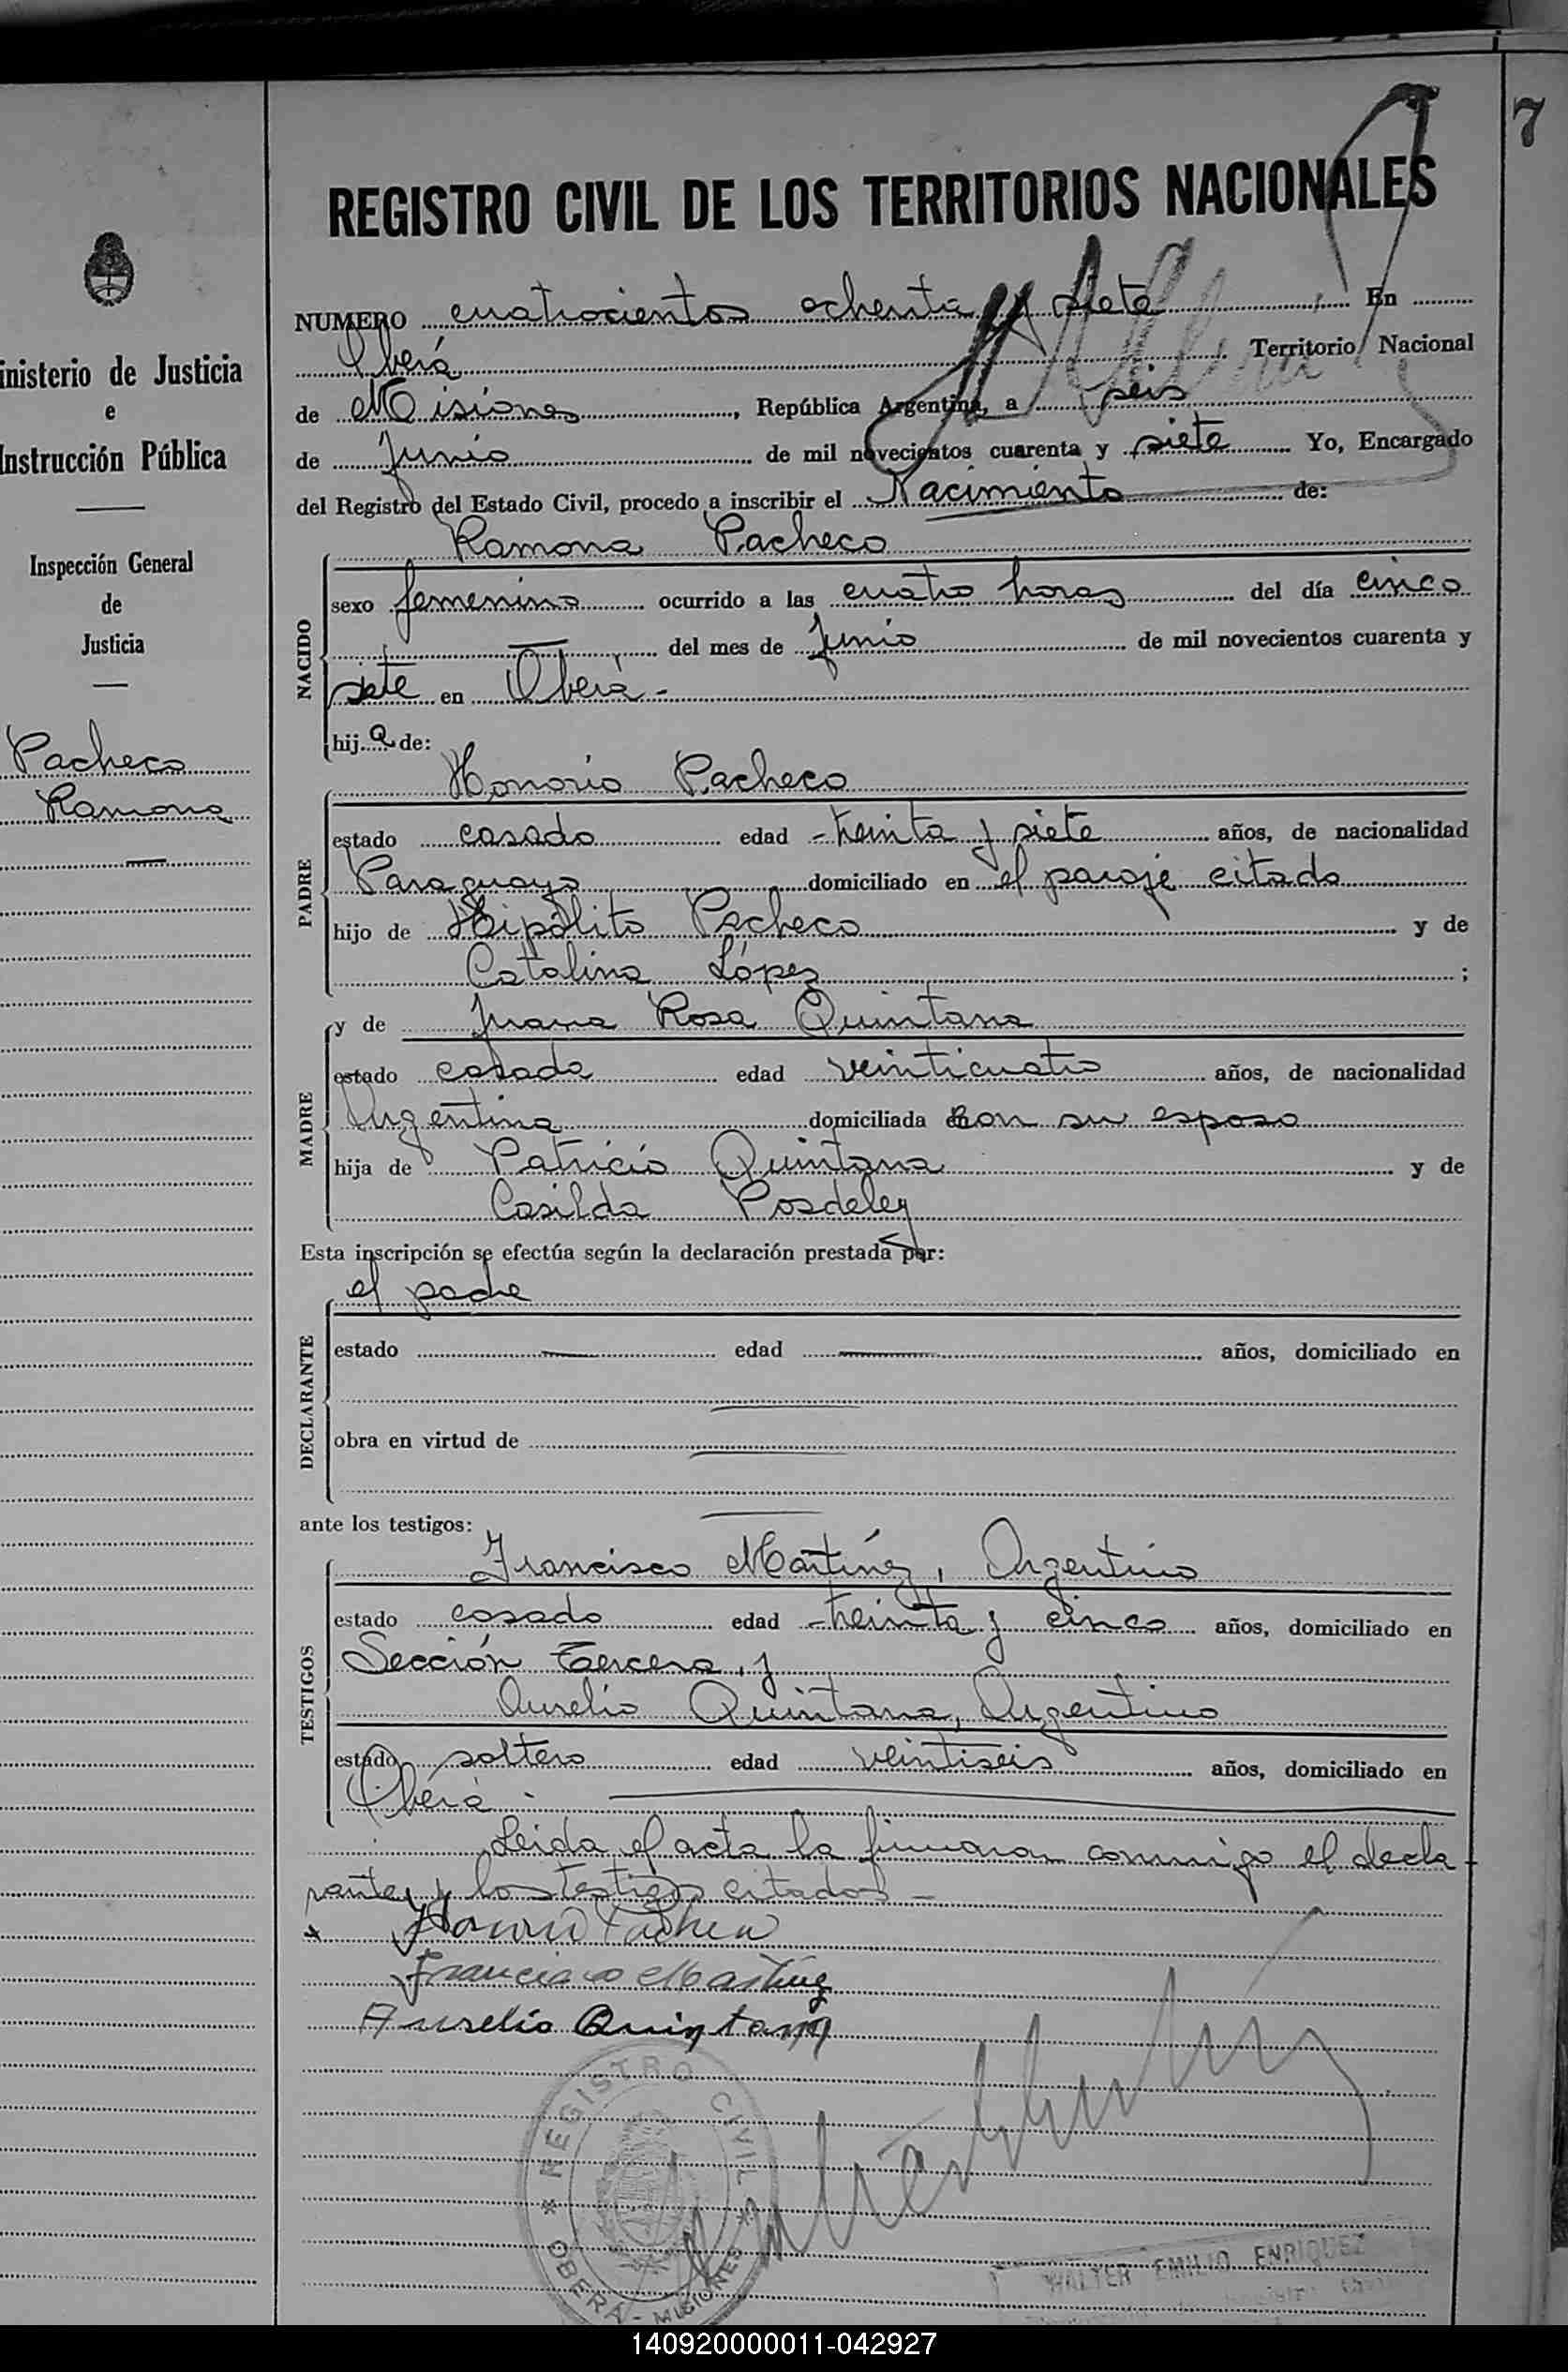 7
REGISTRO CIVIL DE LOS TERRITORIOS NACIONALES
inisterio de Justicia
e
Instrucción Pública
Inspección General
de
Justicia
Pacheco
Ramona
NUMERO cuatrocientos ochenta y siete En
Oberá Territorio Nacional
de Misiones, República Argentina, a seis
de Junio de mil novecientos cuarenta y siete Yo, Encargado
del Registro del Estado Civil, procedo a inscribir el Nacimiento de:
Ramona Pacheco
NACIDO
sexo femenino ocurrido a las cuatro horas del día cinco
del mes de Junio de mil novecientos cuarenta y
siete en Oberá-
hija de:
Honorio Pacheco
PADRE
estado casado edad treinta y siete años, de nacionalidad
Paraguaya domiciliado en el paraje citado
hijo de Hipólito Pacheco y de
Catalina López;
MADRE
y de Juana Rosa Quintana
estado casada edad veinticuatro años, de nacionalidad
Argentina domiciliada con su esposo
hija de Patricio Quintana y de
Casilda Posdeley
Esta inscripción se efectúa según la declaración prestada por:
el padre
DECLARANTE
estado edad años, domiciliado en
obra en virtud de
ante los testigos:
Francisco Martínez, Argentino
TESTIGOS
estado casado edad treinta y cinco años, domiciliado en
Sección Tercera, y
Aurelio Quintana, Argentino
estado soltero edad veintiseis años, domiciliado en
Oberá.
Leida el acta la firmaron conmigo el decla
rante y los testigos citados-
Francisco Martinez
Aurelio Quintana
REGISTRO CIVIL
OBERÁ - MISIONES
WALTER EMILIO ENRIQUEZ
140920000011-042927